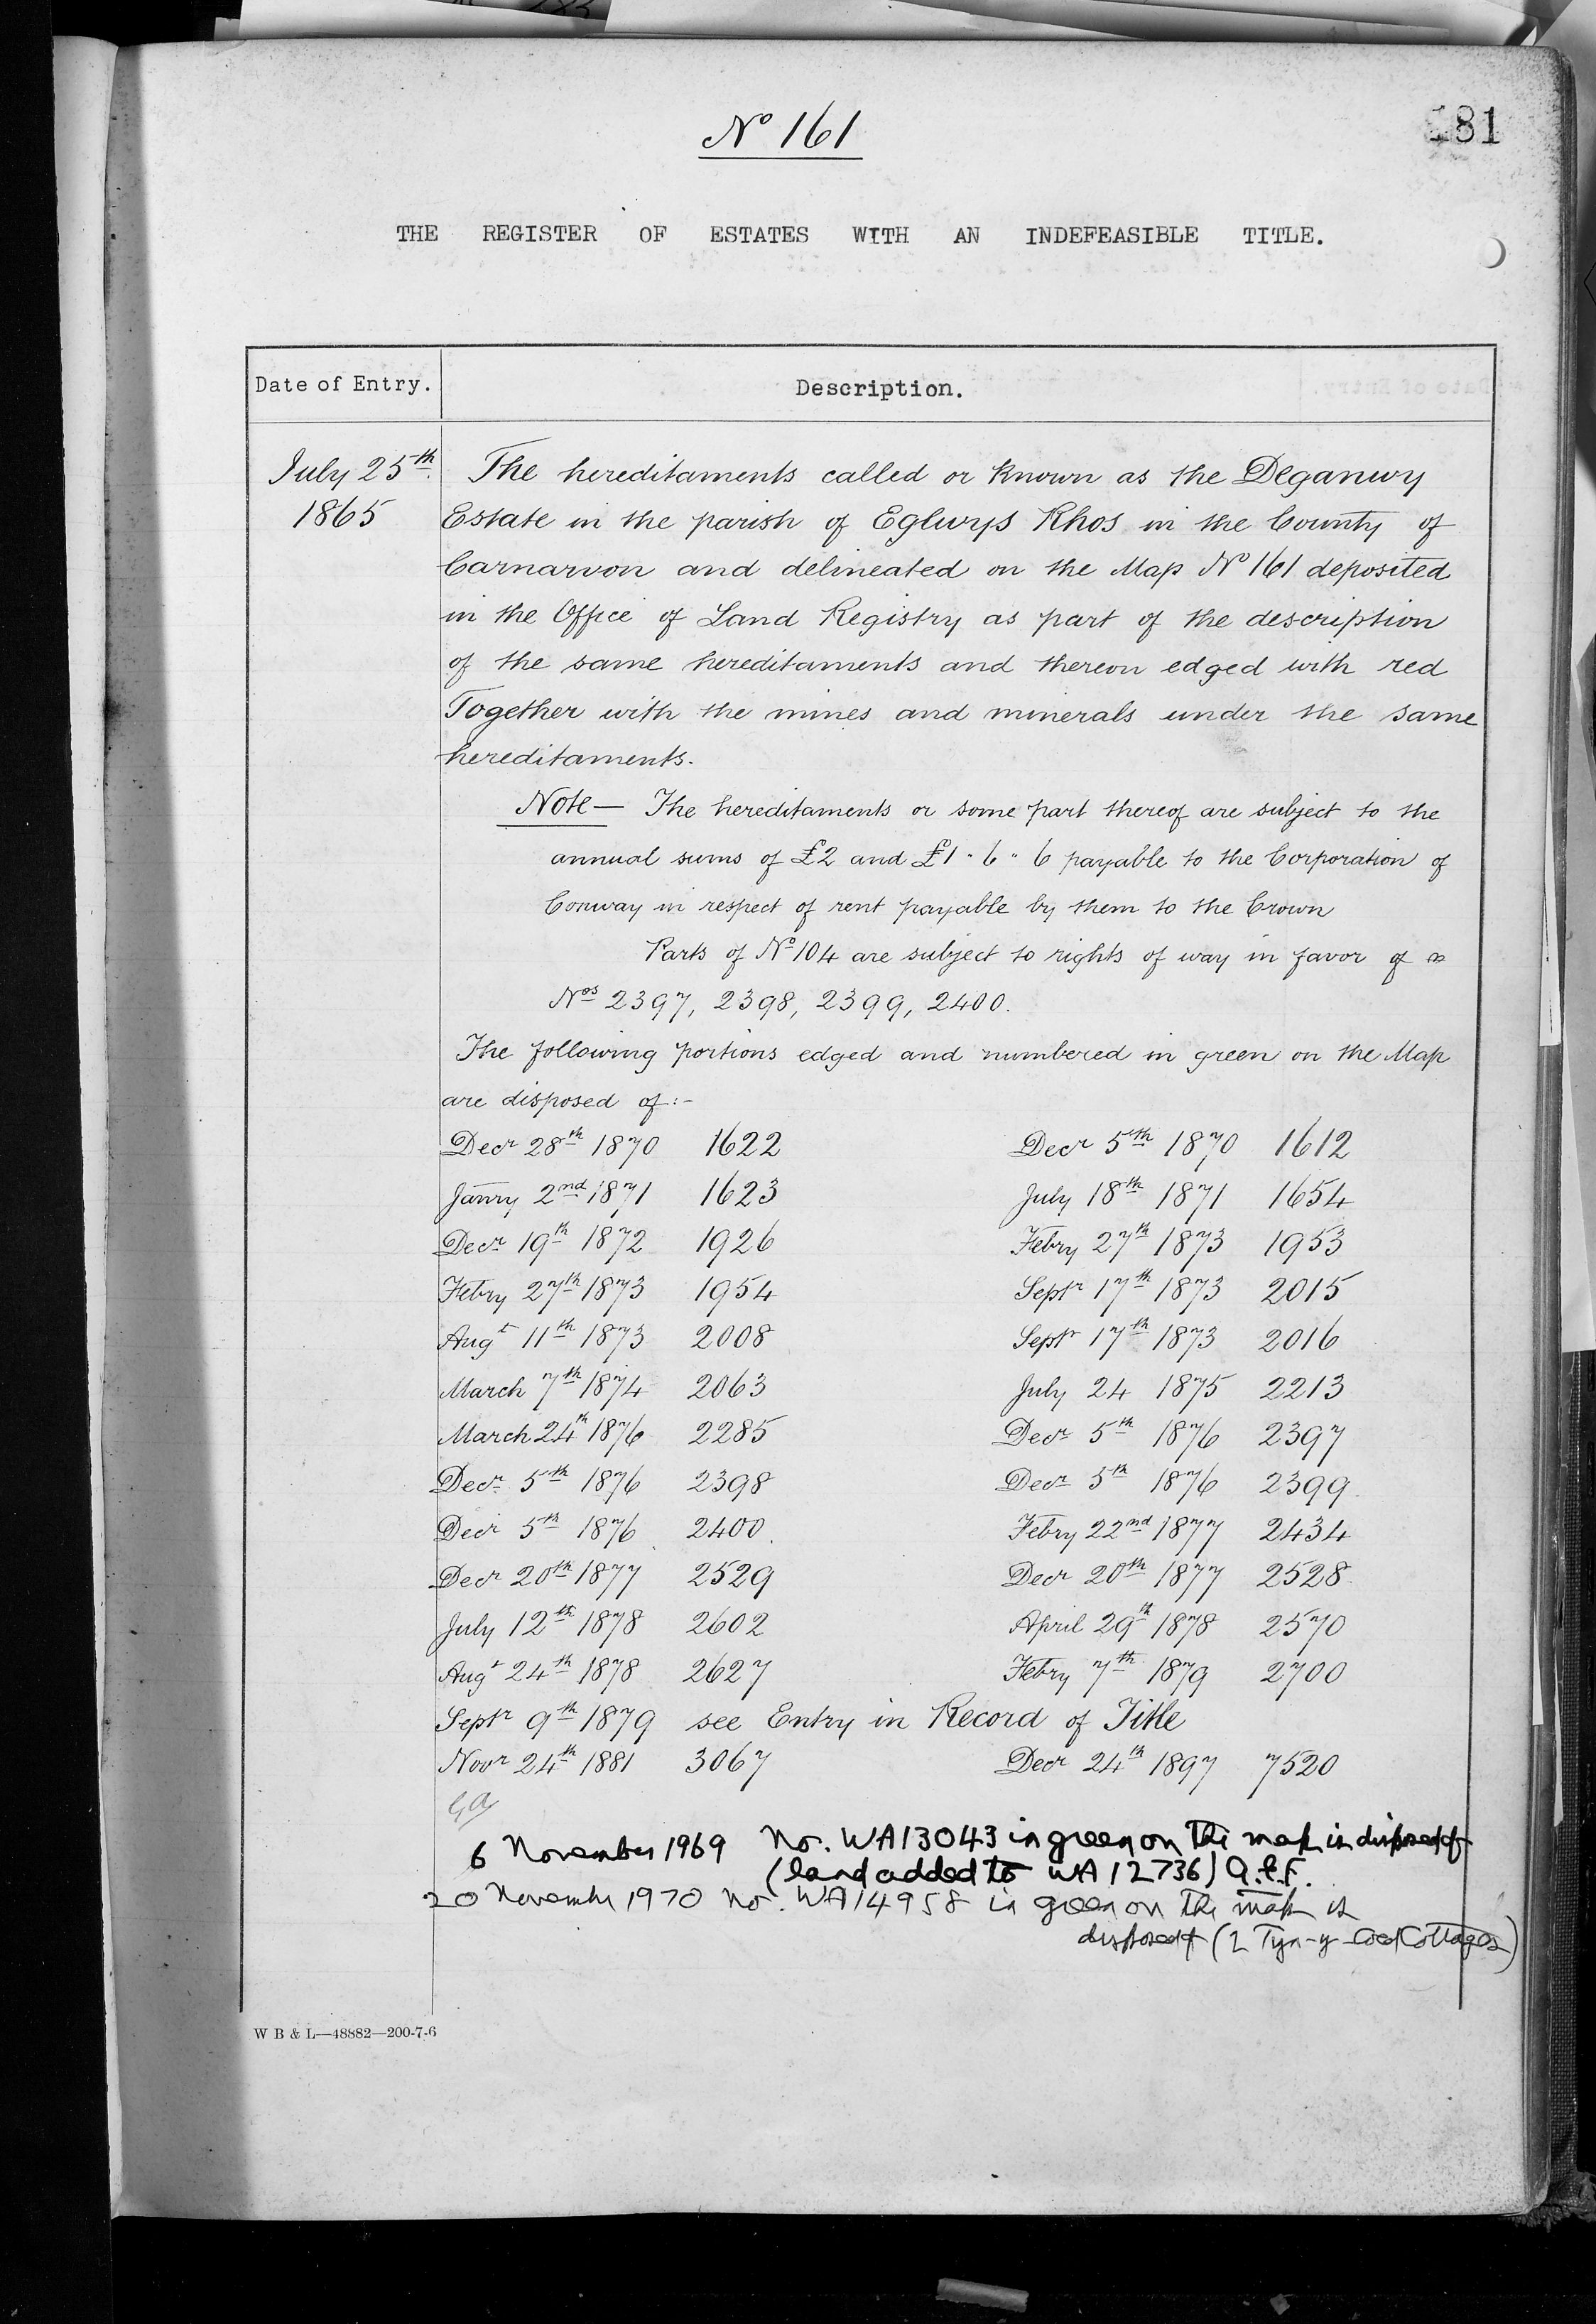 No 161
181
THE REGISTER OF ESTATES WITH AN INDEFEASIBLE TITLE.
Date of Entry. Description.
July 25th. The hereditaments called or known as the Deganwy
1865 Estate in the parish of Eglwys Rhos in the County of
Carnarvon and delineated on the Map No 161 deposited
in the Office of Land Registry as part of the description
of the same hereditaments and thereon edged with red
Together with the mines and minerals under the same
hereditaments.
Note— The hereditaments or some part thereof are subject to the
annual sums of £2 and £1 " 6 " 6 payable to the Corporation of
Conway in respect of rent payable by them to the Crown
Parts of No 104 are subject to rights of way in favor of
Nos 2397, 2398, 2399, 2400.
The following portions edged and numbered in green on the Map
are disposed of:-
Decr 28th 1870 1622 Decr 5th 1870 1612
Janry 2nd 1871 1623 July 18th 1871 1654
Decr 19th 1872 1926 Febry 27th 1873 1953
Febry 27th 1873 1954 Septr 17th 1873 2015
Augt 11th 1873 2008 Septr 17th 1873 2016
March 7th 1874 2063 July 24 1875 2213
March 24th 1876 2285 Decr 5th 1876 2397
Decr 5th 1876 2398 Decr 5th 1876 2399
Decr 5th 1876 2400 Febry 22nd 1877 2434
Decr 20th 1877 2529 Decr 20th 1877 2528
July 12th 1878 2602 April 29th 1878 2570
Augt 24th 1878 2627 Febry 7th 1879 2700
Septr 9th 1879 see Entry in Record of Title
Novr 24th 1881 3067 Decr 24th 1897 7520
6 November 1969 No. WA13043 in green on the map is disposed of
(land added to WA 12736)
20 November 1970 No. WA14958 in green on the map is
disposed of (2 Tyn-y-Coed Cottages)
W B & L—48882—200-7-6